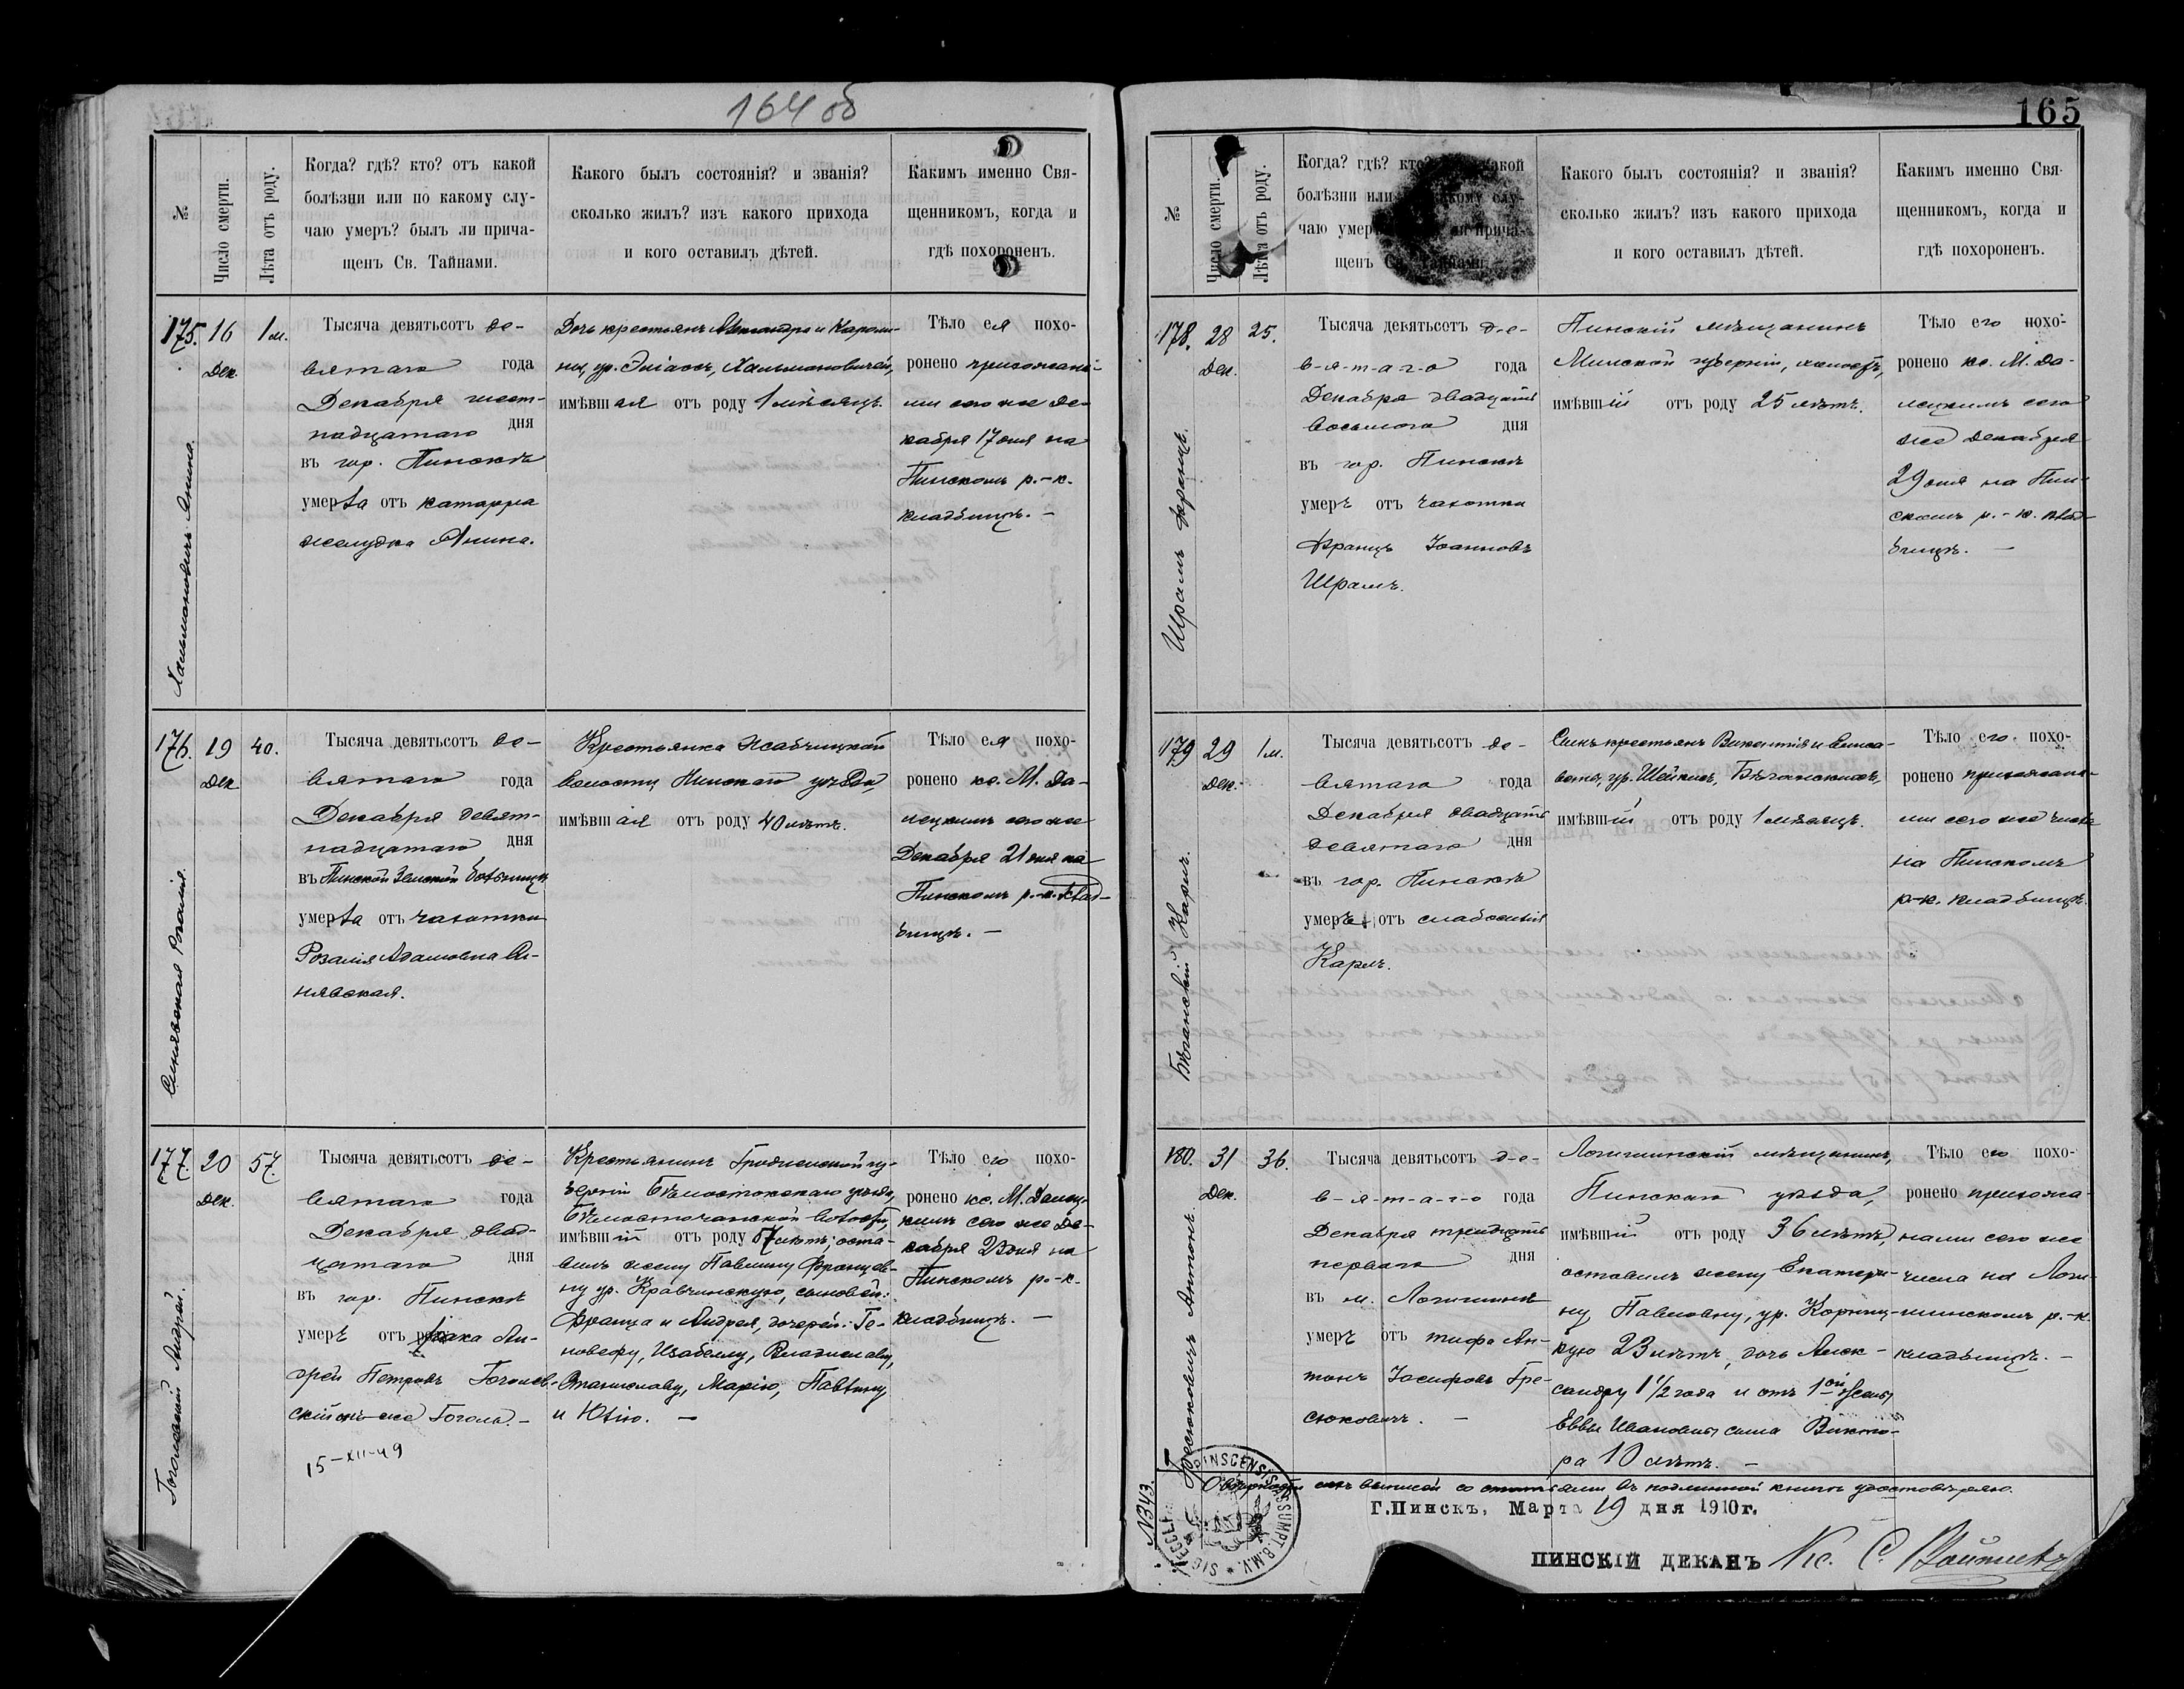 164 об
№
Число смерти.
Лѣта отъ роду.
Когда? гдѣ? кто? отъ какой
болѣзни или по какому слу-
чаю умеръ? былъ ли прича-
щенъ Св. Тайнами.
Какого былъ состоянія? и званія?
сколько жилъ? изъ какого прихода
и кого оставилъ дѣтей.
Каким именно Свя-
щенникомъ, когда и
гдѣ похороненъ.
175. 16 Дек. 1 м.
Хальмановичъ Янина.
Тысяча девятьсотъ де-
вятаго года
Декабря шест-
надцатаго дня
въ гор. Пинскѣ
умерla отъ катарра
желудка Янина.
Дочь крестьянъ Александра и Кароли-
ны, ур. Эліасъ, Хальмановичей,
имѣвшая отъ роду 1 мѣсяцъ.
Тѣло ея похо-
ронено прихожана-
ми сего же Де-
кабря 17 дня на
Пинскомъ р.-к.
кладбищѣ. —
176. 19 Дек. 40.
Синявская Розалія.
Тысяча девятьсотъ де-
вятаго года
Декабря девят-
надцатаго дня
въ Пинской Земской больницѣ
умерла отъ чахотки
Розалія Адамовна Си-
нявская.
Крестьянка Жабчицкой
волости Пинскаго уѣзда,
имѣвшая отъ роду 40 лѣтъ.
Тѣло ея похо-
ронено кс. М. Да-
лецкимъ сего же
Декабря 21 дня на
Пинскомъ р.-к. клад-
бищѣ. —
177. 20 Дек. 57.
Гогольскій Андрей.
Тысяча девятьсотъ де-
вятаго года
Декабря двад-
цатаго дня
въ гор. Пинскѣ
умеръ отъ рака Ан-
дрей Петровъ Гогoлев-
скій онъ-же Гоголь. —
15-XII-49
Крестьянинъ Гродненской гу-
берніи Бѣлостокскаго уѣзда,
Бѣлосточанской волости,
имѣвшій отъ роду 57 лѣтъ; оста-
вилъ жену Павлину Францов-
ну ур. Кравчинскую, сыновей:
Франца и Андрея, дочерей: Ге-
новефу, Изабеллу, Владиславу,
Станиславу, Марію, Павлину
и Юлію. —
Тѣло его похо-
ронено кс. М. Далец-
кимъ сего же Де-
кабря 23 дня на
Пинскомъ р.-к.
кладбищѣ. —
165
№
Число смерти.
Лѣта отъ роду.
Когда? гдѣ? кто? какой
болѣзни или какому слу-
чаю умеръ ли прича-
щенъ Св. Тайнами.
Какого былъ состоянія? и званія?
сколько жилъ? изъ какого прихода
и кого оставилъ дѣтей.
Каким именно Свя-
щенникомъ, когда и
гдѣ похороненъ.
178. 28 Дек. 25.
Шрамъ Францъ.
Тысяча девятьсотъ д-е-
в-я-т-а-г-о года
Декабря двадцать
восьмого дня
въ гор. Пинскѣ
умеръ отъ чахотки
Францъ Іоанновъ
Шрамъ.
Пинскій мѣщанинъ
Минской губерніи, холостъ,
имѣвшій отъ роду 25 лѣтъ.
Тѣло его похо-
ронено кс. М. Да-
лецкимъ сего
же Декабря
29 дня на Пин-
скомъ р.-к. клад-
бищѣ. —
179 29 Дек. 1 м.
Бѣганскій Карлъ.
Тысяча девятьсотъ де-
вятаго года
Декабря двадцать
девятаго дня
въ гор. Пинскѣ
умеръ отъ слабосилія
Карлъ.
Сынъ крестьянъ Викентія и Елиса-
веты, ур. Шейкисъ, Бѣганскихъ,
имѣвшій отъ роду 1 мѣсяцъ.
Тѣло его похо-
ронено прихожана-
ми сего же числа
на Пинскомъ
р-к. кладбищѣ.
180. 31 Дек. 36.
Гресюковичъ Антонъ.
Тысяча девятьсотъ д-е-
в-я-т-а-г-о года
Декабря тридцать
перваго дня
въ м. Логишинѣ
умеръ отъ тифа Ан-
тонъ Іосифовъ Гре-
сюковичъ. —
Логишинскій мѣщанинъ,
Пинскаго уѣзда,
имѣвшій отъ роду 36 лѣтъ,
оставилъ жену Екатери-
ну Павловну, ур. Корниц-
кую 23 лѣтъ, дочь Алек-
сандру 1 1/2 года и отъ 1ой жены
Еввы Ивановны сына Викто-
ра 10 лѣтъ. —
Тѣло его похо-
ронено прихожа-
нами сего же
числа на Логи-
шинскомъ р.-к.
кладбищѣ. —
О вѣрности сихъ выписей со статьями въ подлинной книгѣ удостовѣряю.
Г. Пинскъ, Марта 19 дня 1910 г.
№ 343.
PINSCENSIS ASSUMPT. B.M.V. * SIG. ECCL.
ПИНСКІЙ ДЕКАНЪ Кс. С.